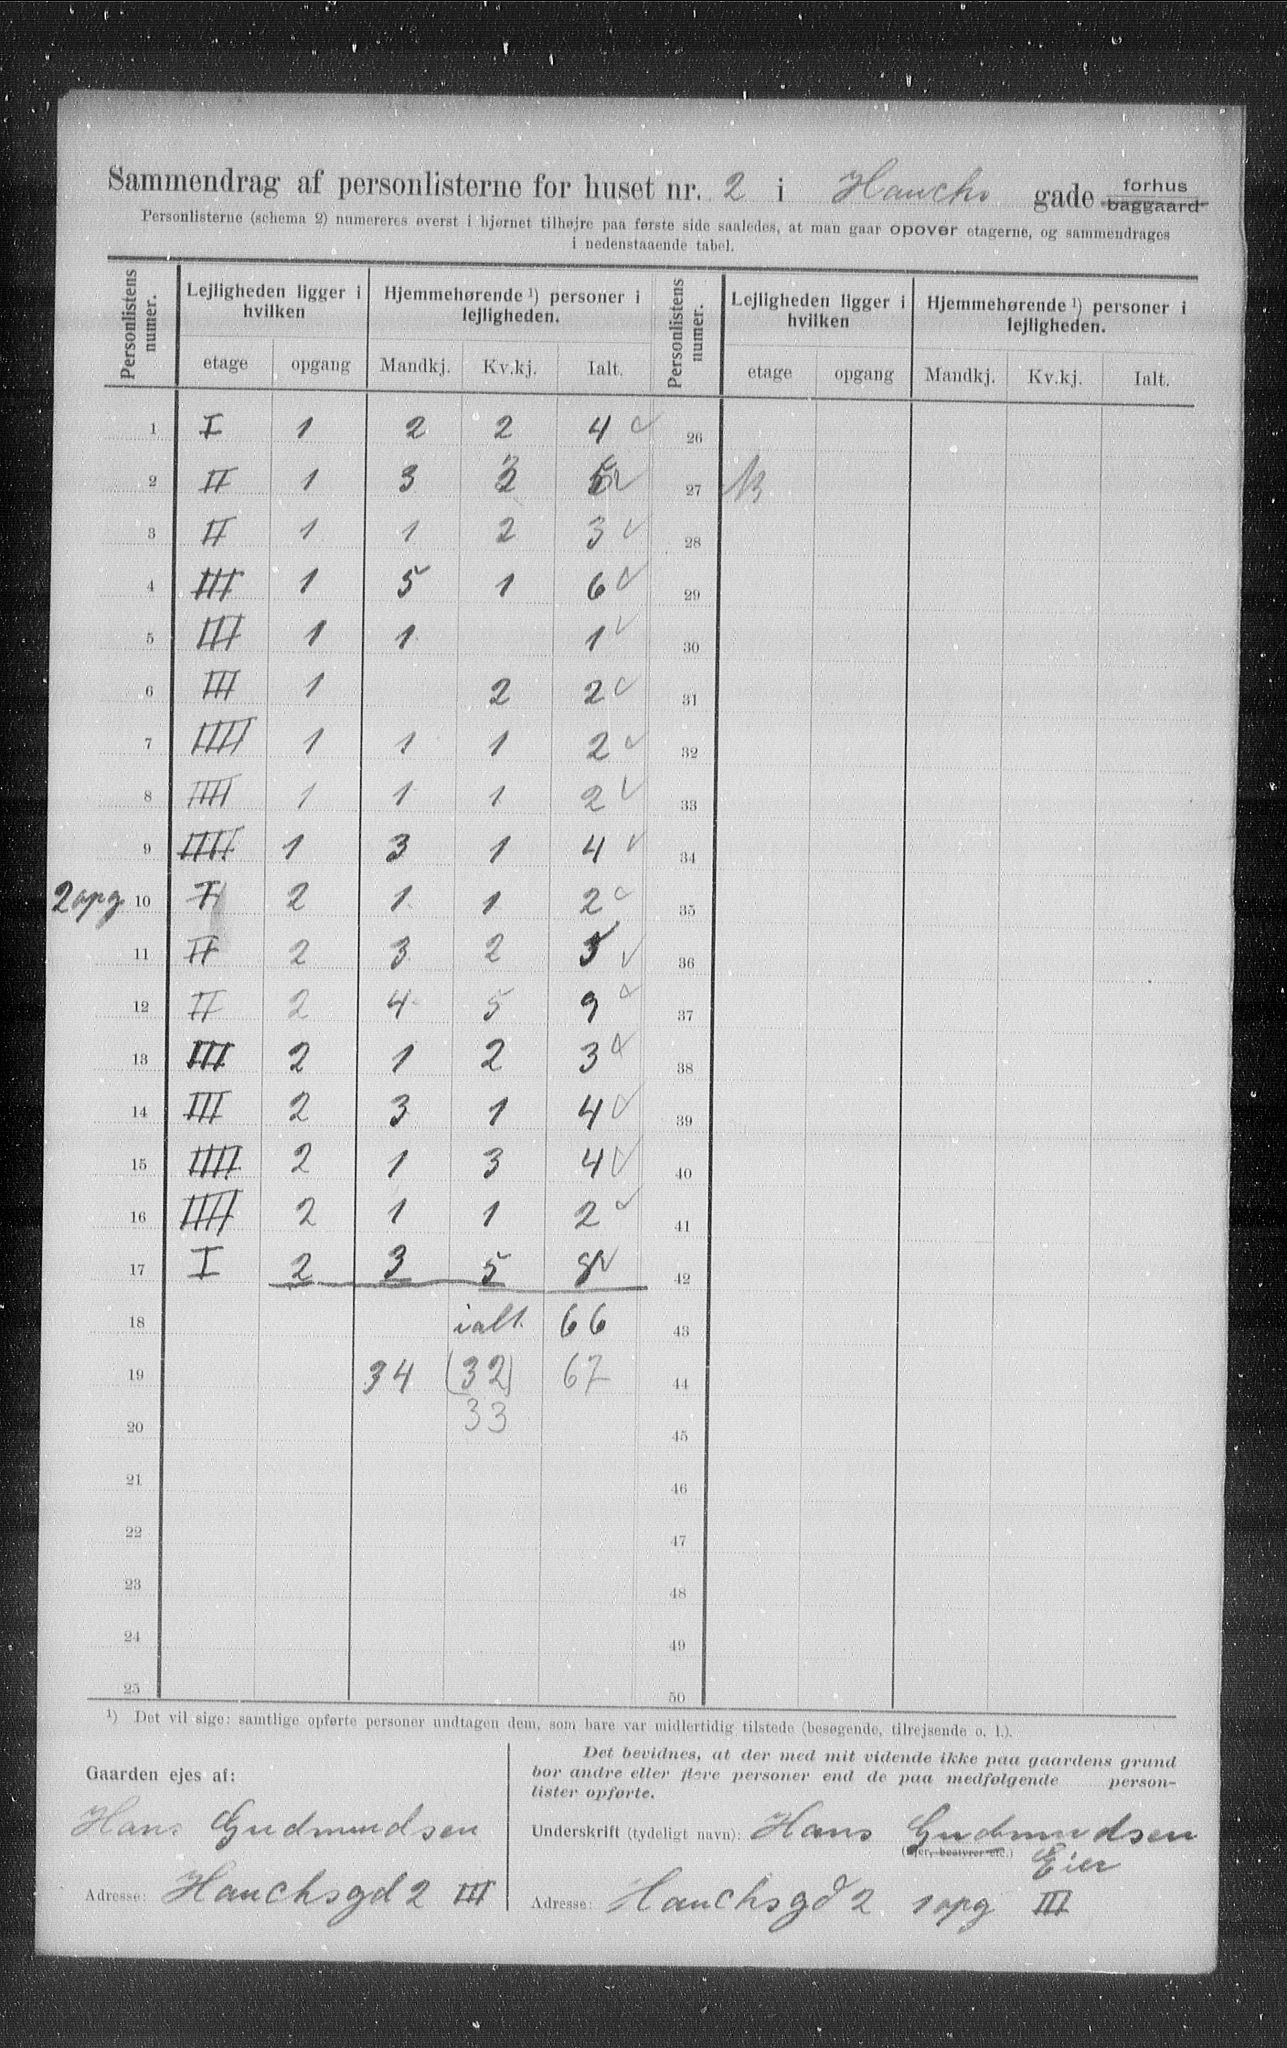 Sammendrag af personlisterne for huset nr. 2 i Hauchs gade forhus baggaard
Personlisterne (schema 2) numereres øverst i hjørnet tilhøjre paa første side saaledes, at man gaar opover etagerne, og sammendrages
i nedenstaaende tabel.
Personlistens numer. Lejligheden ligger i hvilken Hjemmehørende ¹) personer i lejligheden. Personlistens numer. Lejligheden ligger i hvilken Hjemmehørende ¹) personer i lejligheden.
etage opgang Mandkj. Kv.kj. Ialt. etage opgang Mandkj. Kv.kj. Ialt.
1 I 1 2 2 4 ✓ 26
2 II 1 3 2 5 ✓ 27
3 II 1 1 2 3 ✓ 28
4 III 1 5 1 6 ✓ 29
5 III 1 1 1 ✓ 30
6 III 1 2 2 ✓ 31
7 IIII 1 1 1 2 ✓ 32
8 IIII 1 1 1 2 ✓ 33
9 IIII 1 3 1 4 ✓ 34
2 opg 10 I 2 1 1 2 ✓ 35
11 II 2 3 2 5 ✓ 36
12 II 2 4 5 9 ✓ 37
13 III 2 1 2 3 ✓ 38
14 III 2 3 1 4 ✓ 39
15 IIII 2 1 3 4 ✓ 40
16 IIII 2 1 1 2 ✓ 41
17 I 2 3 5 8 ✓ 42
18 ialt. 66 43
19 34 (32) 67 44
33
20 45
21 46
22 47
23 48
24 49
25 50
¹) Det vil sige: samtlige opførte personer undtagen dem, som bare var midlertidig tilstede (besøgende, tilrejsende o. l.).
Gaarden ejes af:
Hans Gudmundsen
Adresse: Hauchsgd 2 III
Det bevidnes, at der med mit vidende ikke paa gaardens grund
bor andre eller flere personer end de paa medfølgende person-
lister opførte.
Underskrift (tydeligt navn): Hans Gudmundsen
(Ejer, bestyrer etc.) Eier
Adresse: Hauchsgd 2 1 opg III